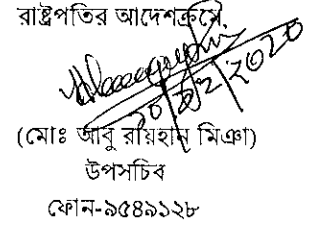 রাষ্ট্রপতির আদেশক্রমে,
(মোঃ আবু রায়হান মিঞা)
উপসচিব
ফোন-৯৫৪৯১২৮